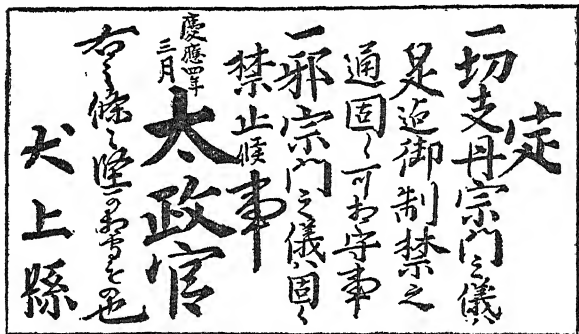 定
一切支丹宗門之儀ハ
是迄御制禁之
通固ク可相守事
一邪宗門之儀ハ固ク
禁止候事
慶應四年
三月
太政官
右之條々堅可相守者也
犬上縣